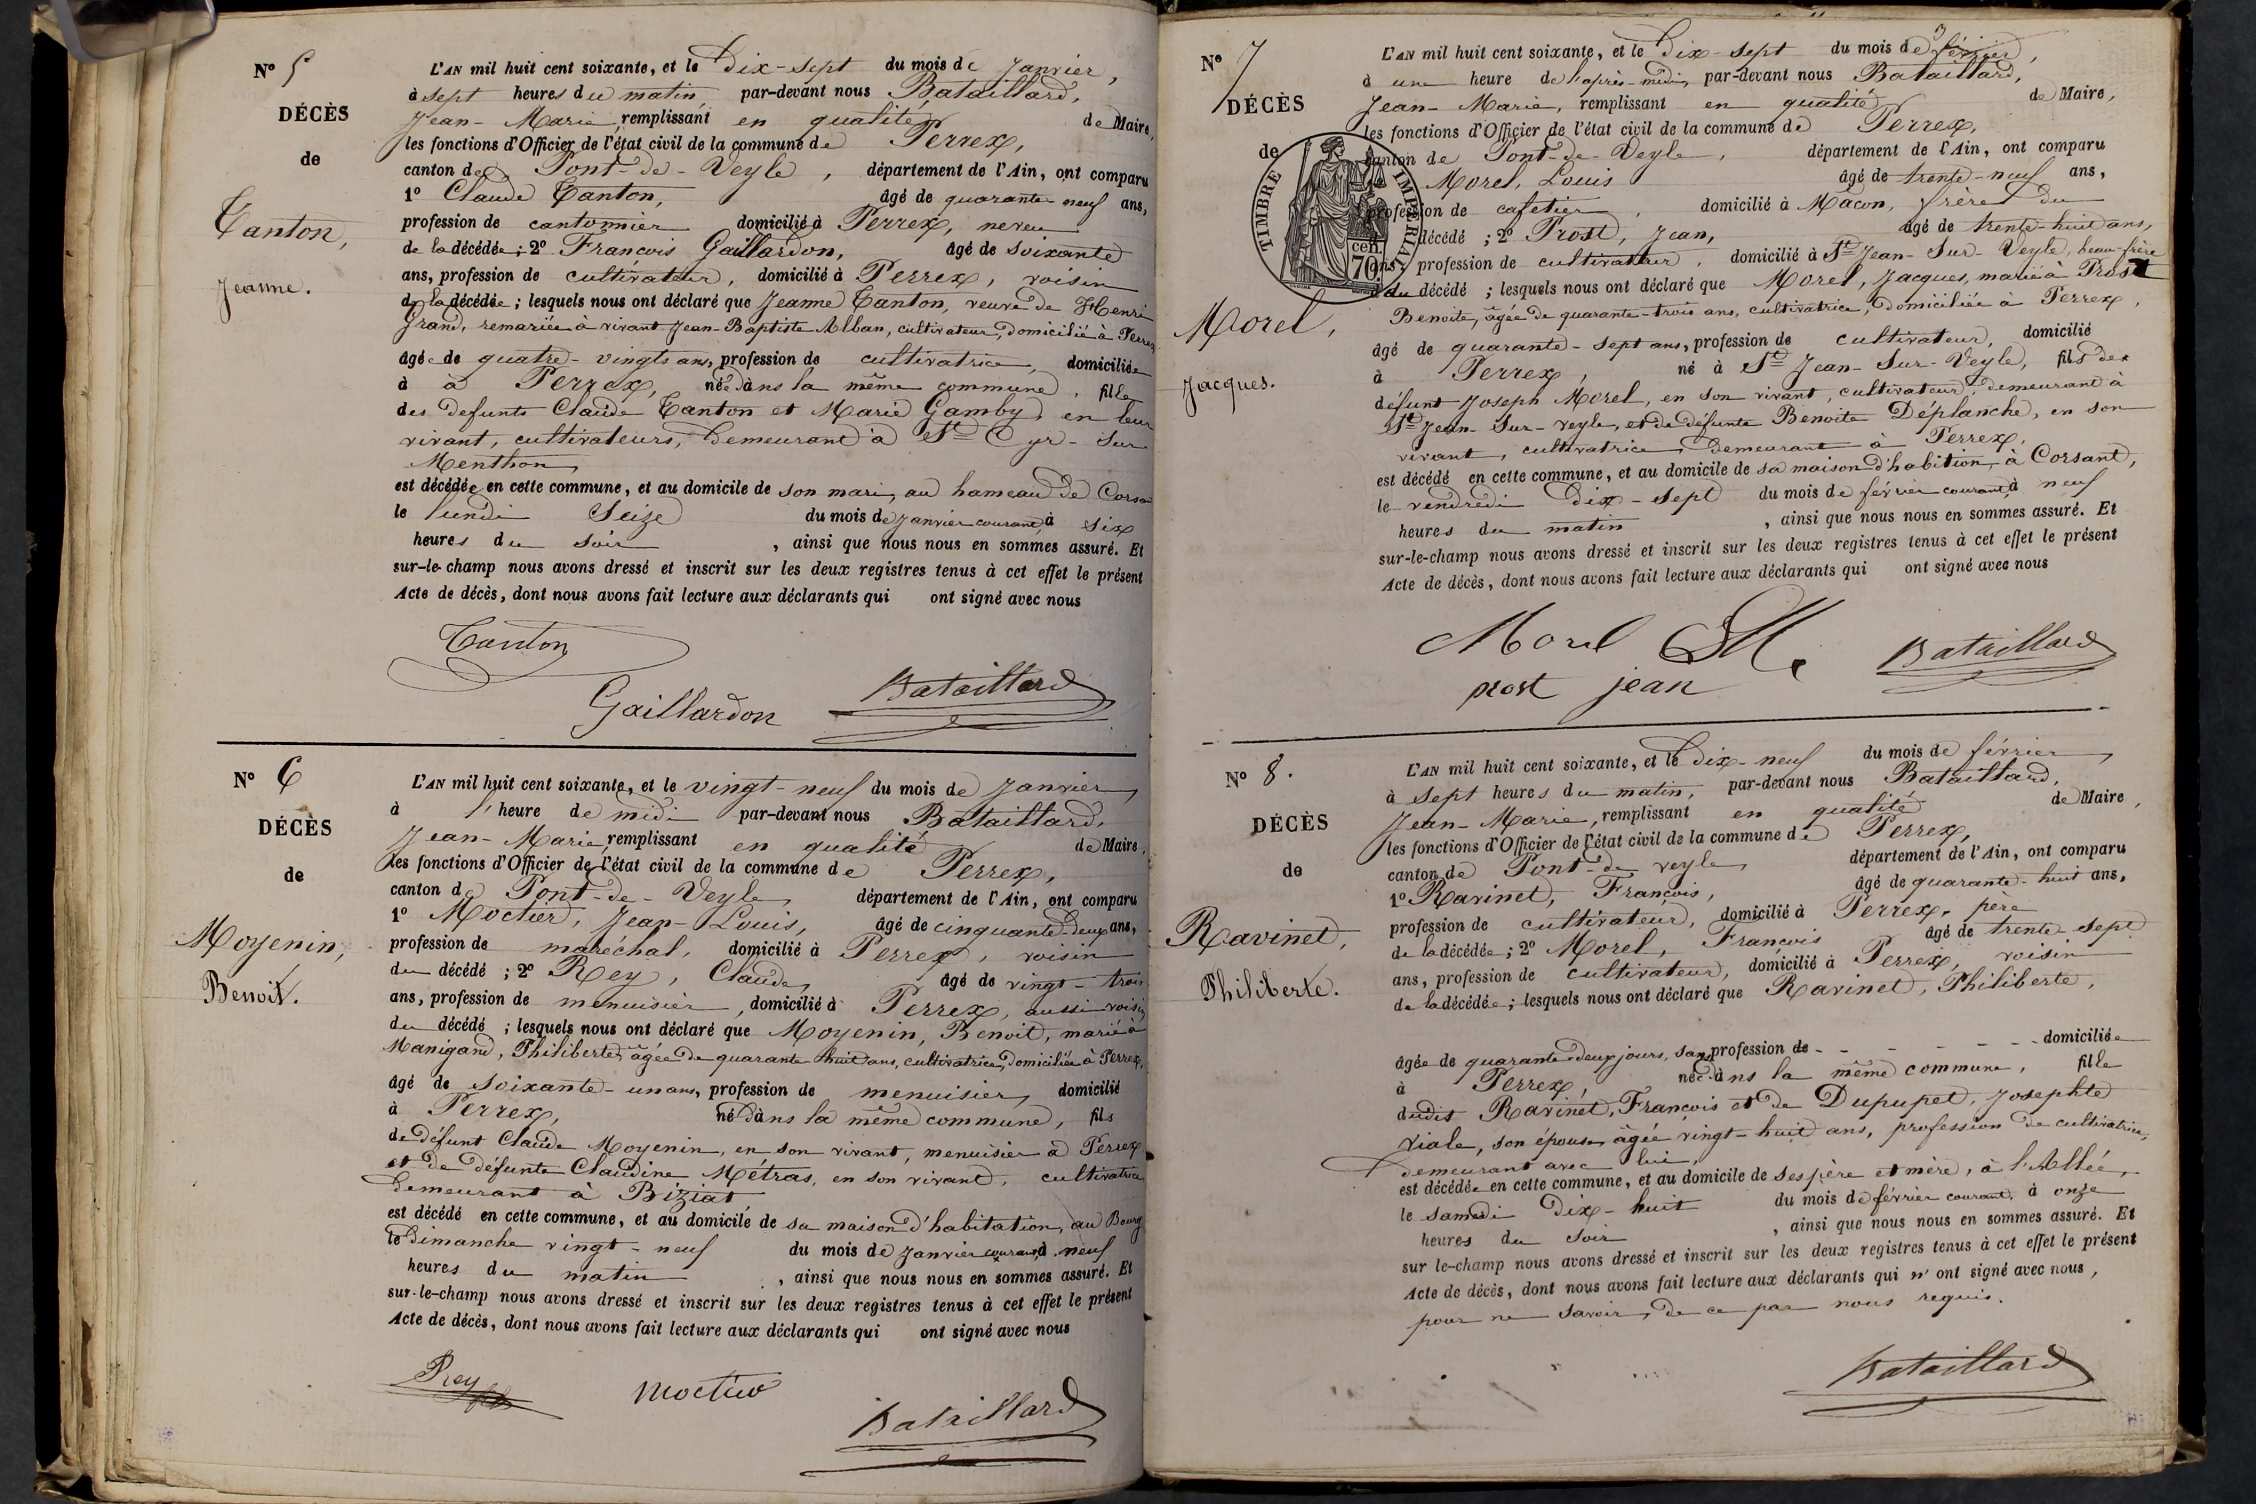 N° 5
DÉCÈS
de
Tanton,
Jeanne.
L'AN mil huit cent soixante, et le Dix-sept du mois de Janvier,
à sept heures du matin par-devant nous Bataillard,
Jean-Marie, remplissant en qualité de Maire,
les fonctions d'Officier de l'état civil de la commune de Perrex,
canton de Pont-de-Veyle, département de l'Ain, ont comparu
1° Claude Tanton, âgé de quarante neuf ans,
profession de cantonnier domicilié à Perrex, neveu
de la décédée; 2° François Gaillardon, âgé de soixante
ans, profession de cultivateur, domicilié à Perrex, voisin
de la décédée; lesquels nous ont déclaré que Jeanne Tanton, veuve de Henri
Grand, remariée à vivant Jean-Baptiste Alban, cultivateur, domicilié à Perrex
âgée de quatre-vingts ans, profession de cultivatrice, domiciliée
à à Perrex, née dans la même commune, fille
des defunts Claude Tanton et Marie Gamby, en leur
vivant, cultivateurs, demeurant à St Cyr-sur
Menthon,
est décédée en cette commune, et au domicile de son mari, au hameau de Corsant
le lundi Seize du mois de Janvier courant, à six
heures du soir, ainsi que nous nous en sommes assuré. Et
sur-le-champ nous avons dressé et inscrit sur les deux registres tenus à cet effet le présent
Acte de décès, dont nous avons fait lecture aux déclarants qui ont signé avec nous
Tanton
Gaillardon
Bataillard
N° 6
DÉCÈS
de
Moyenin,
Benoit.
L'AN mil huit cent soixante, et le vingt-neuf du mois de Janvier,
à l'heure de midi par-devant nous Bataillard,
Jean-Marie, remplissant en qualité de Maire,
les fonctions d'Officier de l'état civil de la commune de Perrex,
canton de Pont-de-Veyle, département de l'Ain, ont comparu
1° Moctier, Jean-Louis, âgé de cinquante-deux ans,
profession de maréchal, domicilié à Perrex, voisin
du décédé; 2° Rey, Claude, âgé de vingt-trois
ans, profession de menuisier, domicilié à Perrex, aussi voisin
du décédé; lesquels nous ont déclaré que Moyenin, Benoit, marié à
Manigand, Philiberte, âgée de quarante huit ans, cultivatrice, domiciliée à Perrex,
âgé de soixante-un ans, profession de menuisier, domicilié
à Perrex, né dans la même commune, fils
de défunt Claude Moyenin, en son vivant, menuisier à Perrex
et de défunte Claudine Métras, en son vivant, cultivatrice
demeurant à Biziat
est décédé en cette commune, et au domicile de sa maison d'habitation, au Bourg
le dimanche vingt-neuf du mois de Janvier courant, à neuf
heures du matin, ainsi que nous nous en sommes assuré. Et
sur-le-champ nous avons dressé et inscrit sur les deux registres tenus à cet effet le présent
Acte de décès, dont nous avons fait lecture aux déclarants qui ont signé avec nous
Rey
Moctier
Bataillard
N° 7
DÉCÈS
de
TIMBRE IMPÉRIAL
cen.
70
Morel,
Jacques.
L'AN mil huit cent soixante, et le Dix-sept du mois de février,
à une heure de l'après-midi, par-devant nous Bataillard,
Jean-Marie, remplissant en qualité de Maire,
les fonctions d'Officier de l'état civil de la commune de Perrex,
canton de Pont-de-Veyle, département de l'Ain, ont comparu
Morel, Louis âgé de trente-neuf ans,
profession de cafetier, domicilié à Mâcon, frère du
décédé; 2° Prost, Jean, âgé de trente-huit ans,
ans, profession de cultivateur, domicilié à St Jean-Sur-Veyle, beau-frère
du décédé; lesquels nous ont déclaré que Morel, Jacques, marié à Prost
Benoite, âgée de quarante-trois ans, cultivatrice, domiciliée à Perrex,
âgé de quarante-sept ans, profession de cultivateur, domicilié
à Perrex, né à St Jean-Sur-Veyle, fils de
défunt Joseph Morel, en son vivant, cultivateur, demeurant à
St Jean-Sur-Veyle, et de défunte Benoite Déplanche, en son
vivant, cultivatrice, demeurant à Perrex,
est décédé en cette commune, et au domicile de sa maison d'habition, à Corsant,
le vendredi dix-sept du mois de février courant, à neuf
heures du matin, ainsi que nous nous en sommes assuré. Et
sur-le-champ nous avons dressé et inscrit sur les deux registres tenus à cet effet le présent
Acte de décès, dont nous avons fait lecture aux déclarants qui ont signé avec nous
Morel
Bataillard
prost jean
N° 8.
DÉCÈS
de
Ravinet,
Philiberte.
L'AN mil huit cent soixante, et le Dix-neuf du mois de février,
à sept heures du matin, par-devant nous Bataillard,
Jean-Marie, remplissant en qualité de Maire,
les fonctions d'Officier de l'état civil de la commune de Perrex,
canton de Pont-de veyle, département de l'Ain, ont comparu
1° Ravinet, François, âgé de quarante-huit ans,
profession de cultivateur, domicilié à Perrex, père
de la décédée; 2° Morel, François âgé de trente-sept
ans, profession de cultivateur, domicilié à Perrex, voisin
de la décédée; lesquels nous ont déclaré que Ravinet, Philiberte,
âgée de quarante-deux jours, sans profession de - - - - - - domiciliée
à Perrex, née dans la même commune, fille
dudit Ravinet, François et de Dupupet, Josephte
Viale, son épouse, âgée vingt-huit ans, profession de cultivatrice,
demeurant avec lui,
est décédée en cette commune, et au domicile de ses père et mère, à l'Allée,
le samedi Dix-huit du mois de février courant, à onze
heures du soir, ainsi que nous nous en sommes assuré. Et
sur le-champ nous avons dressé et inscrit sur les deux registres tenus à cet effet le présent
Acte de décès, dont nous avons fait lecture aux déclarants qui n'ont signé avec nous,
pour ne savoir, de ce par nous requis.
Bataillard